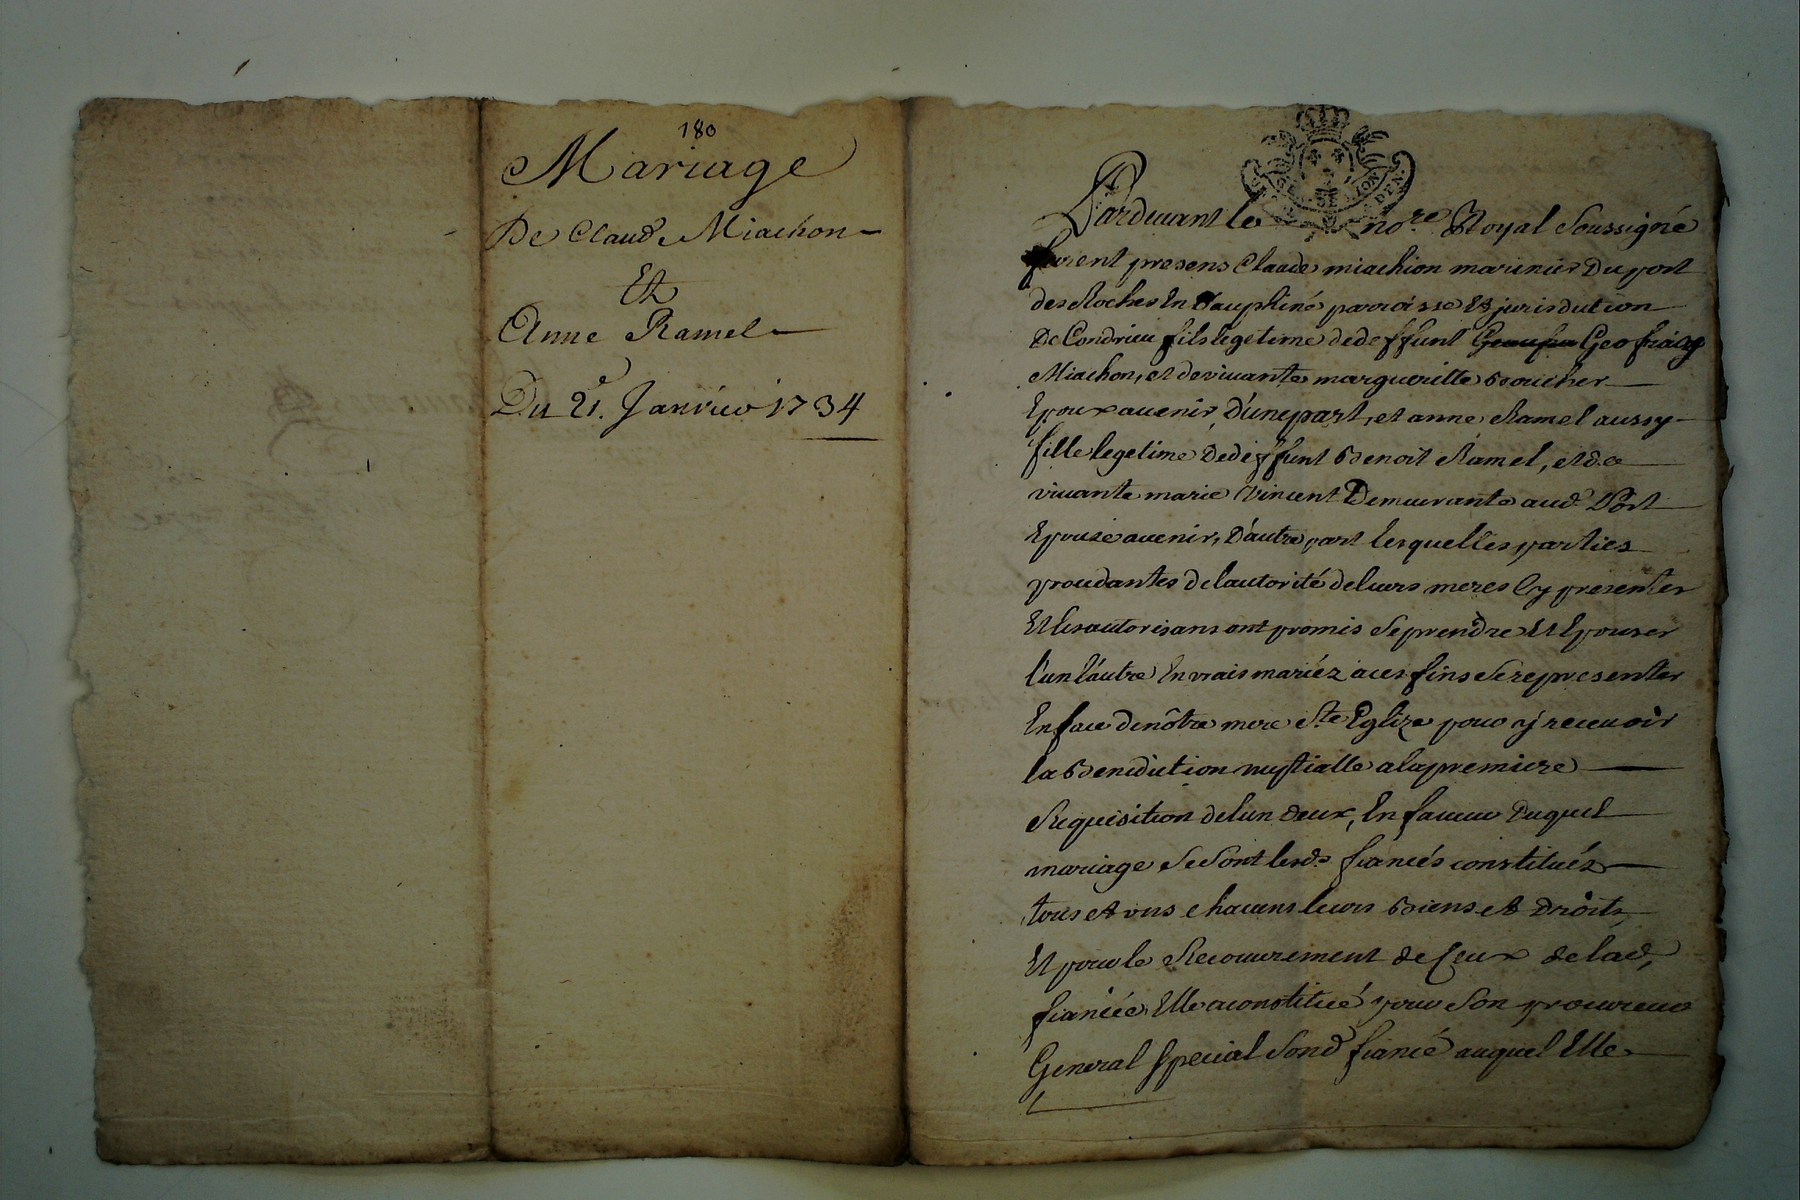 180
Mariage
De Claud. Miachon
Et
Anne Ramel
Du 21e. Janvier 1734
Pardevant le nore. Royal Soussigné
furent presens Claude miachion marinier Du port
des Roches En Dauphiné parroisse Et jurisdiction
De Condrieu fils legetime de deffunt Geofray
Miachon, et de vivante margueritte Boucher
Epoux avenir, D'une part, et anne Ramel aussy
fille legetime De deffunt Benoit Ramel, et de
vivante marie Vincent Demeurante aud. Port
Epouse avenir, D'autre part lesquelles parties
procedantes de l'autorité de leurs meres Cy presenter
Et les autorisans ont promis Se prendre Et Epouser
l'un l'autre En vrais mariéz a ces fins Se representer
En face de nôtre mere Ste Eglize pour y recevoir
la Benediction nuptialle a la premiere
Requisition de l'un deux, En faveur Duquel
mariage Se Sont lesd. fiancés constitués
tous et uns chacuns leurs Biens et Droits
Et pour le Recouvrement de Ceux de lad.
fiancée, Elle a constitué pour Son procureur
General Special Sond. fiancé auquel Elle